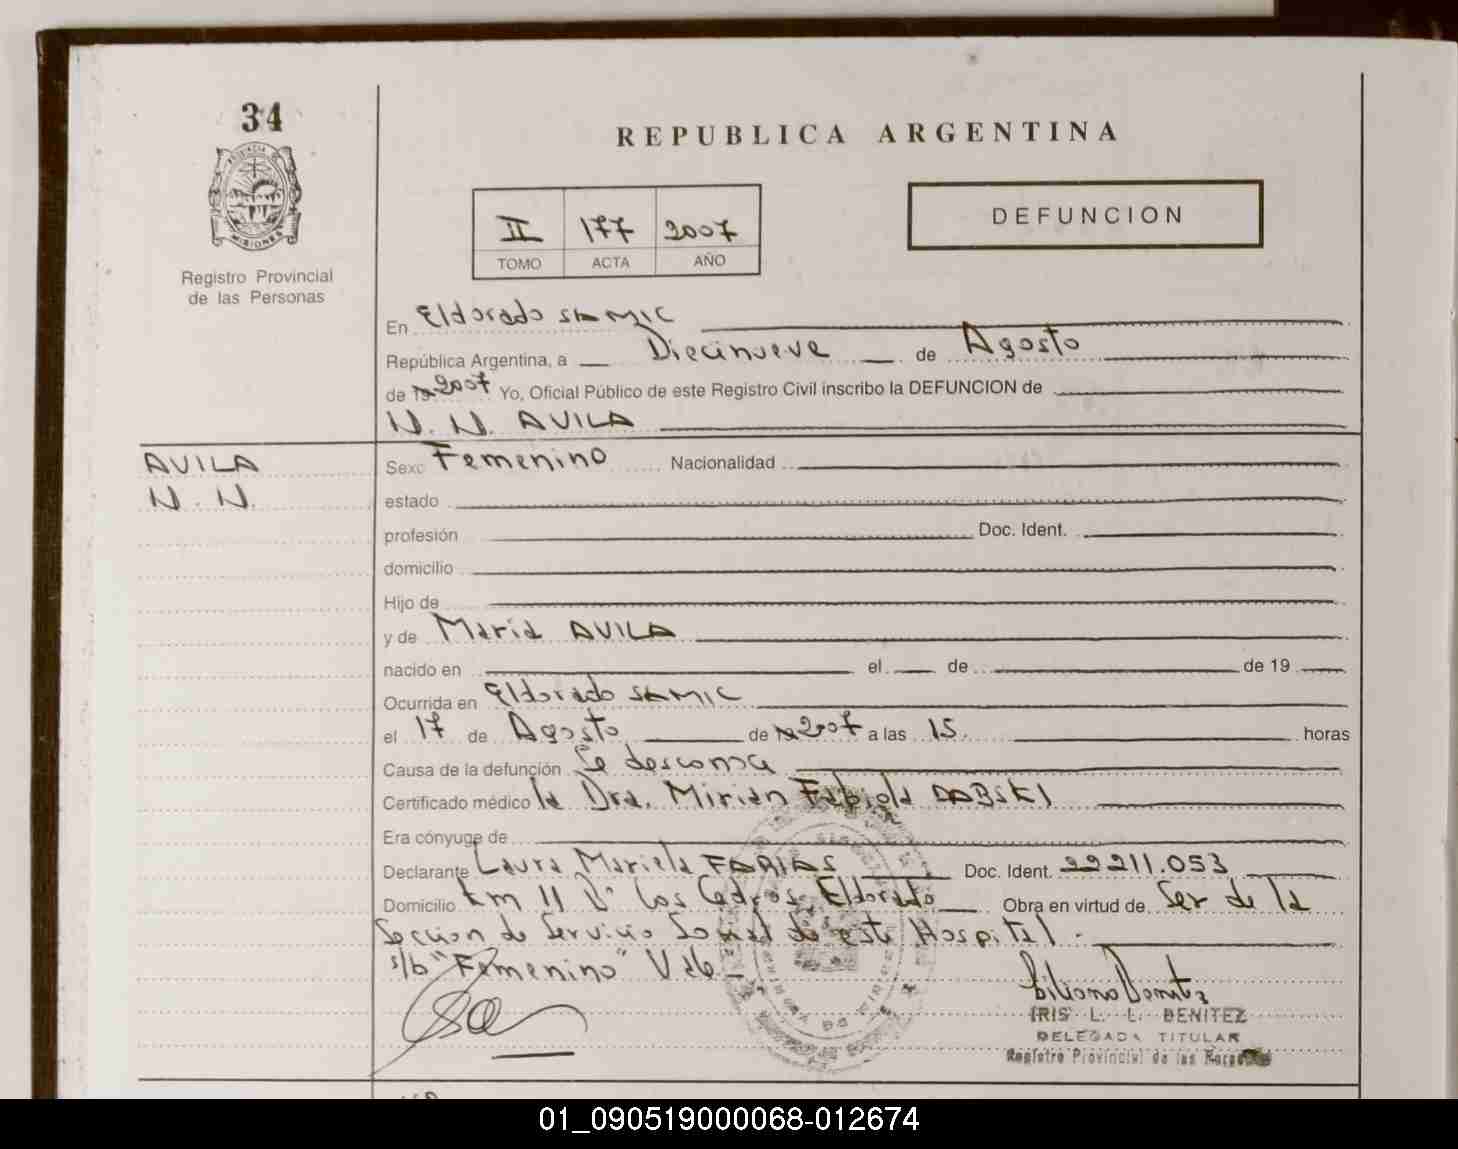 34
REPUBLICA ARGENTINA
PROVINCIA DE
MISIONES
Registro Provincial
de las Personas
II 177 2007
TOMO ACTA AÑO
DEFUNCION
En Eldorado SAMIC
República Argentina, a Diecinueve de Agosto
de 19 2007 Yo, Oficial Público de este Registro Civil inscribo la DEFUNCION de
N. N. AVILA
AVILA
N. N.
Sexo Femenino Nacionalidad
estado
profesión Doc. Ident.
domicilio
Hijo de
y de Maria AVILA
nacido en el de de 19
Ocurrida en Eldorado SAMIC
el 17 de Agosto de 19 2007 a las 15. horas
Causa de la defunción Se desconoce
Certificado médico la Dra. Mirian Fabiola DABSKI
Era cónyuge de
Declarante Laura Mariela FARIAS Doc. Ident. 22211.053
Domicilio Km 11 Bº Los Cedros, Eldorado Obra en virtud de Ser de la
Seccion de Servicio Social de este Hospital.
s/b "Femenino" Vale
IRIS L. L. BENITEZ
DELEGADA TITULAR
Registro Provincial de las Personas
01_090519000068-012674